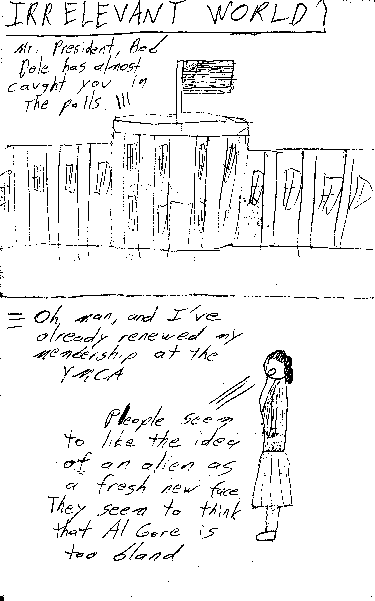 IRRELEVANT WORLD?
Mr. President, Bob
Dole has almost
caught you in
the polls. !!!
Oh man, and I've
already renewed my
membership at the
YMCA
People seem
to like the idea
of an alien as
a fresh new face
They seem to think
that Al Gore is
too bland